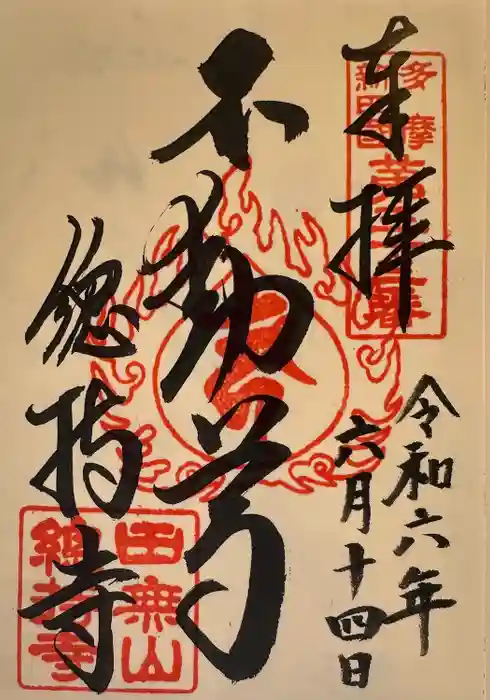 奉拝
多摩
新四国
第三十二番
令和六年
六月十四日
不動尊
總持寺
田無山
總持寺